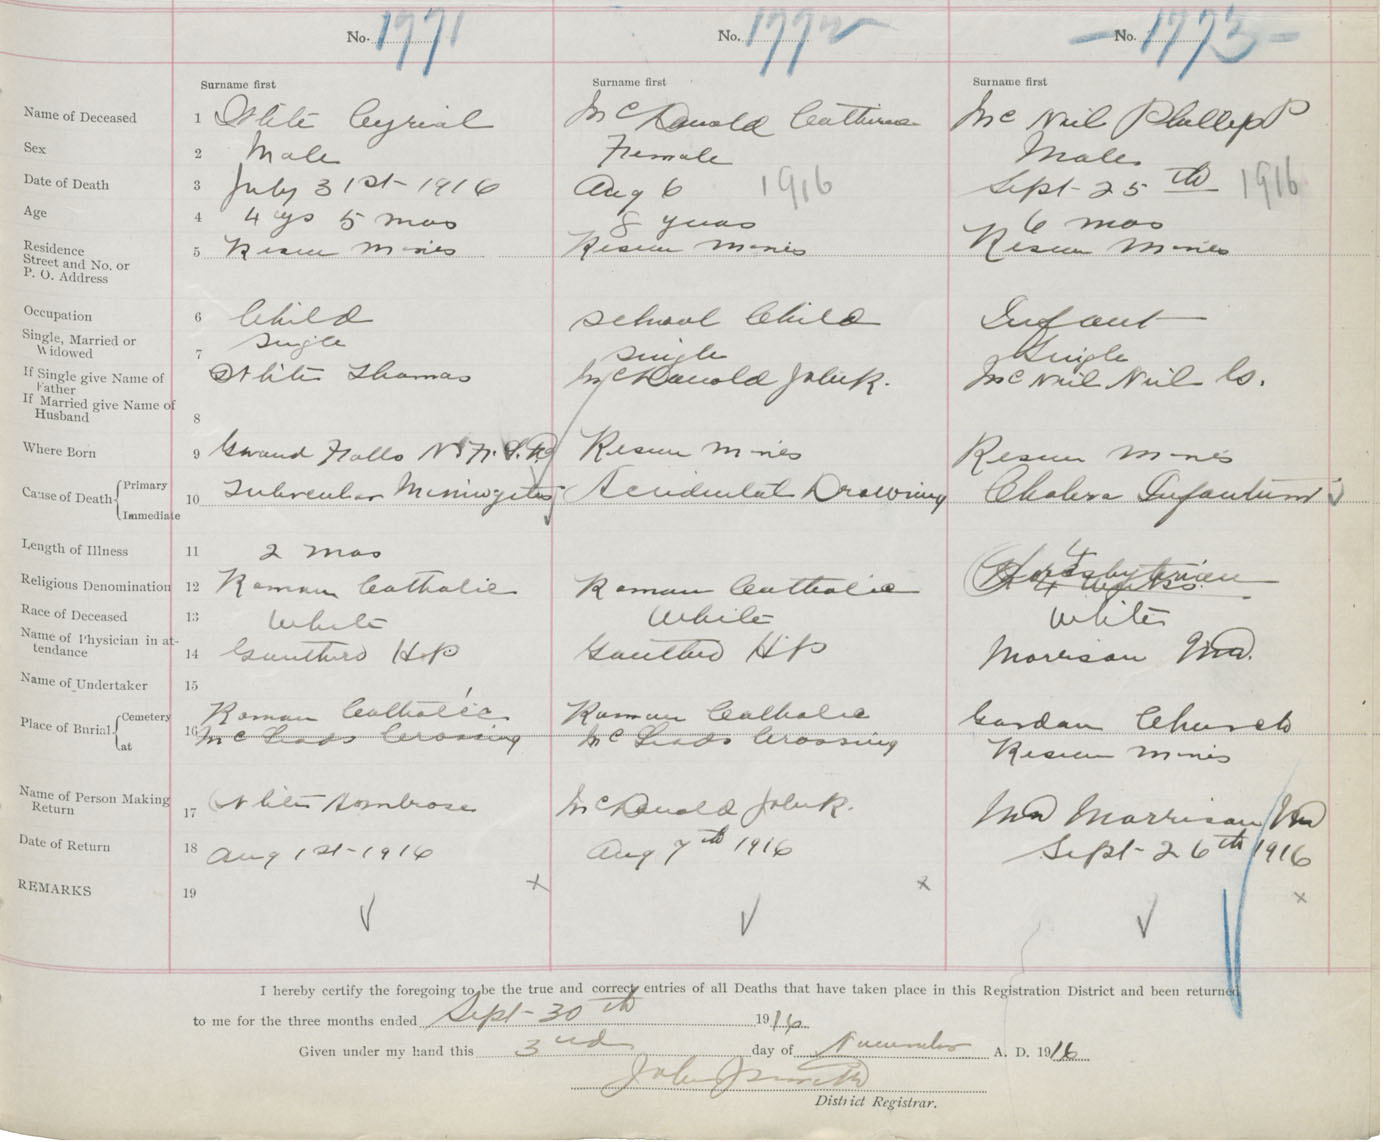 No. 1771 No. 1772 No. 1773
Surname first Surname first Surname first
Name of Deceased 1 White Cyrial McDonald Catherine McNeil Phillip P
Sex 2 Male Female Male
Date of Death 3 July 31st - 1916 Aug 6 1916 Sept - 25th 1916
Age 4 4 ys 5 mos 8 years 6 mos
Residence
Street and No. or 5 Reserve Mines Reserve Mines Reserve Mines
P. O. Address
Occupation 6 Child School Child Infant
Single, Married or
Widowed 7 Single Single Single
If Single give Name of White Thomas McDonald John R. McNeil Neil Co.
Father
If Married give Name of
Husband 8
Where Born 9 Grand Falls Reserve Mines Reserve Mines
Cause of Death { Primary 10 Tubercular Meningetis Accidental Drowning Cholera Infantum
Immediate
Length of Illness 11 2 mos 4 weeks
Religious Denomination 12 Roman Catholic Roman Catholic Presbyterian
Race of Deceased 13 White White White
Name of Physician in at-
tendance 14 Gouthro H P Gouthro H P Morrison MD.
Name of Undertaker 15
Place of Burial { Cemetery Roman Catholic Roman Catholic Gordan Church
at 16 McLeods Crossing McLeods Crossing Reserve Mines
Name of Person Making
Return 17 White Ambrose McDonald John R. MD Morrison MD
Date of Return 18 Aug 1st - 1916 Aug 7th 1916 Sept - 26th 1916
REMARKS 19
I hereby certify the foregoing to be the true and correct entries of all Deaths that have taken place in this Registration District and been returned
to me for the three months ended Sept - 30th 1916
Given under my hand this 3rd day of November A. D. 1916
District Registrar.